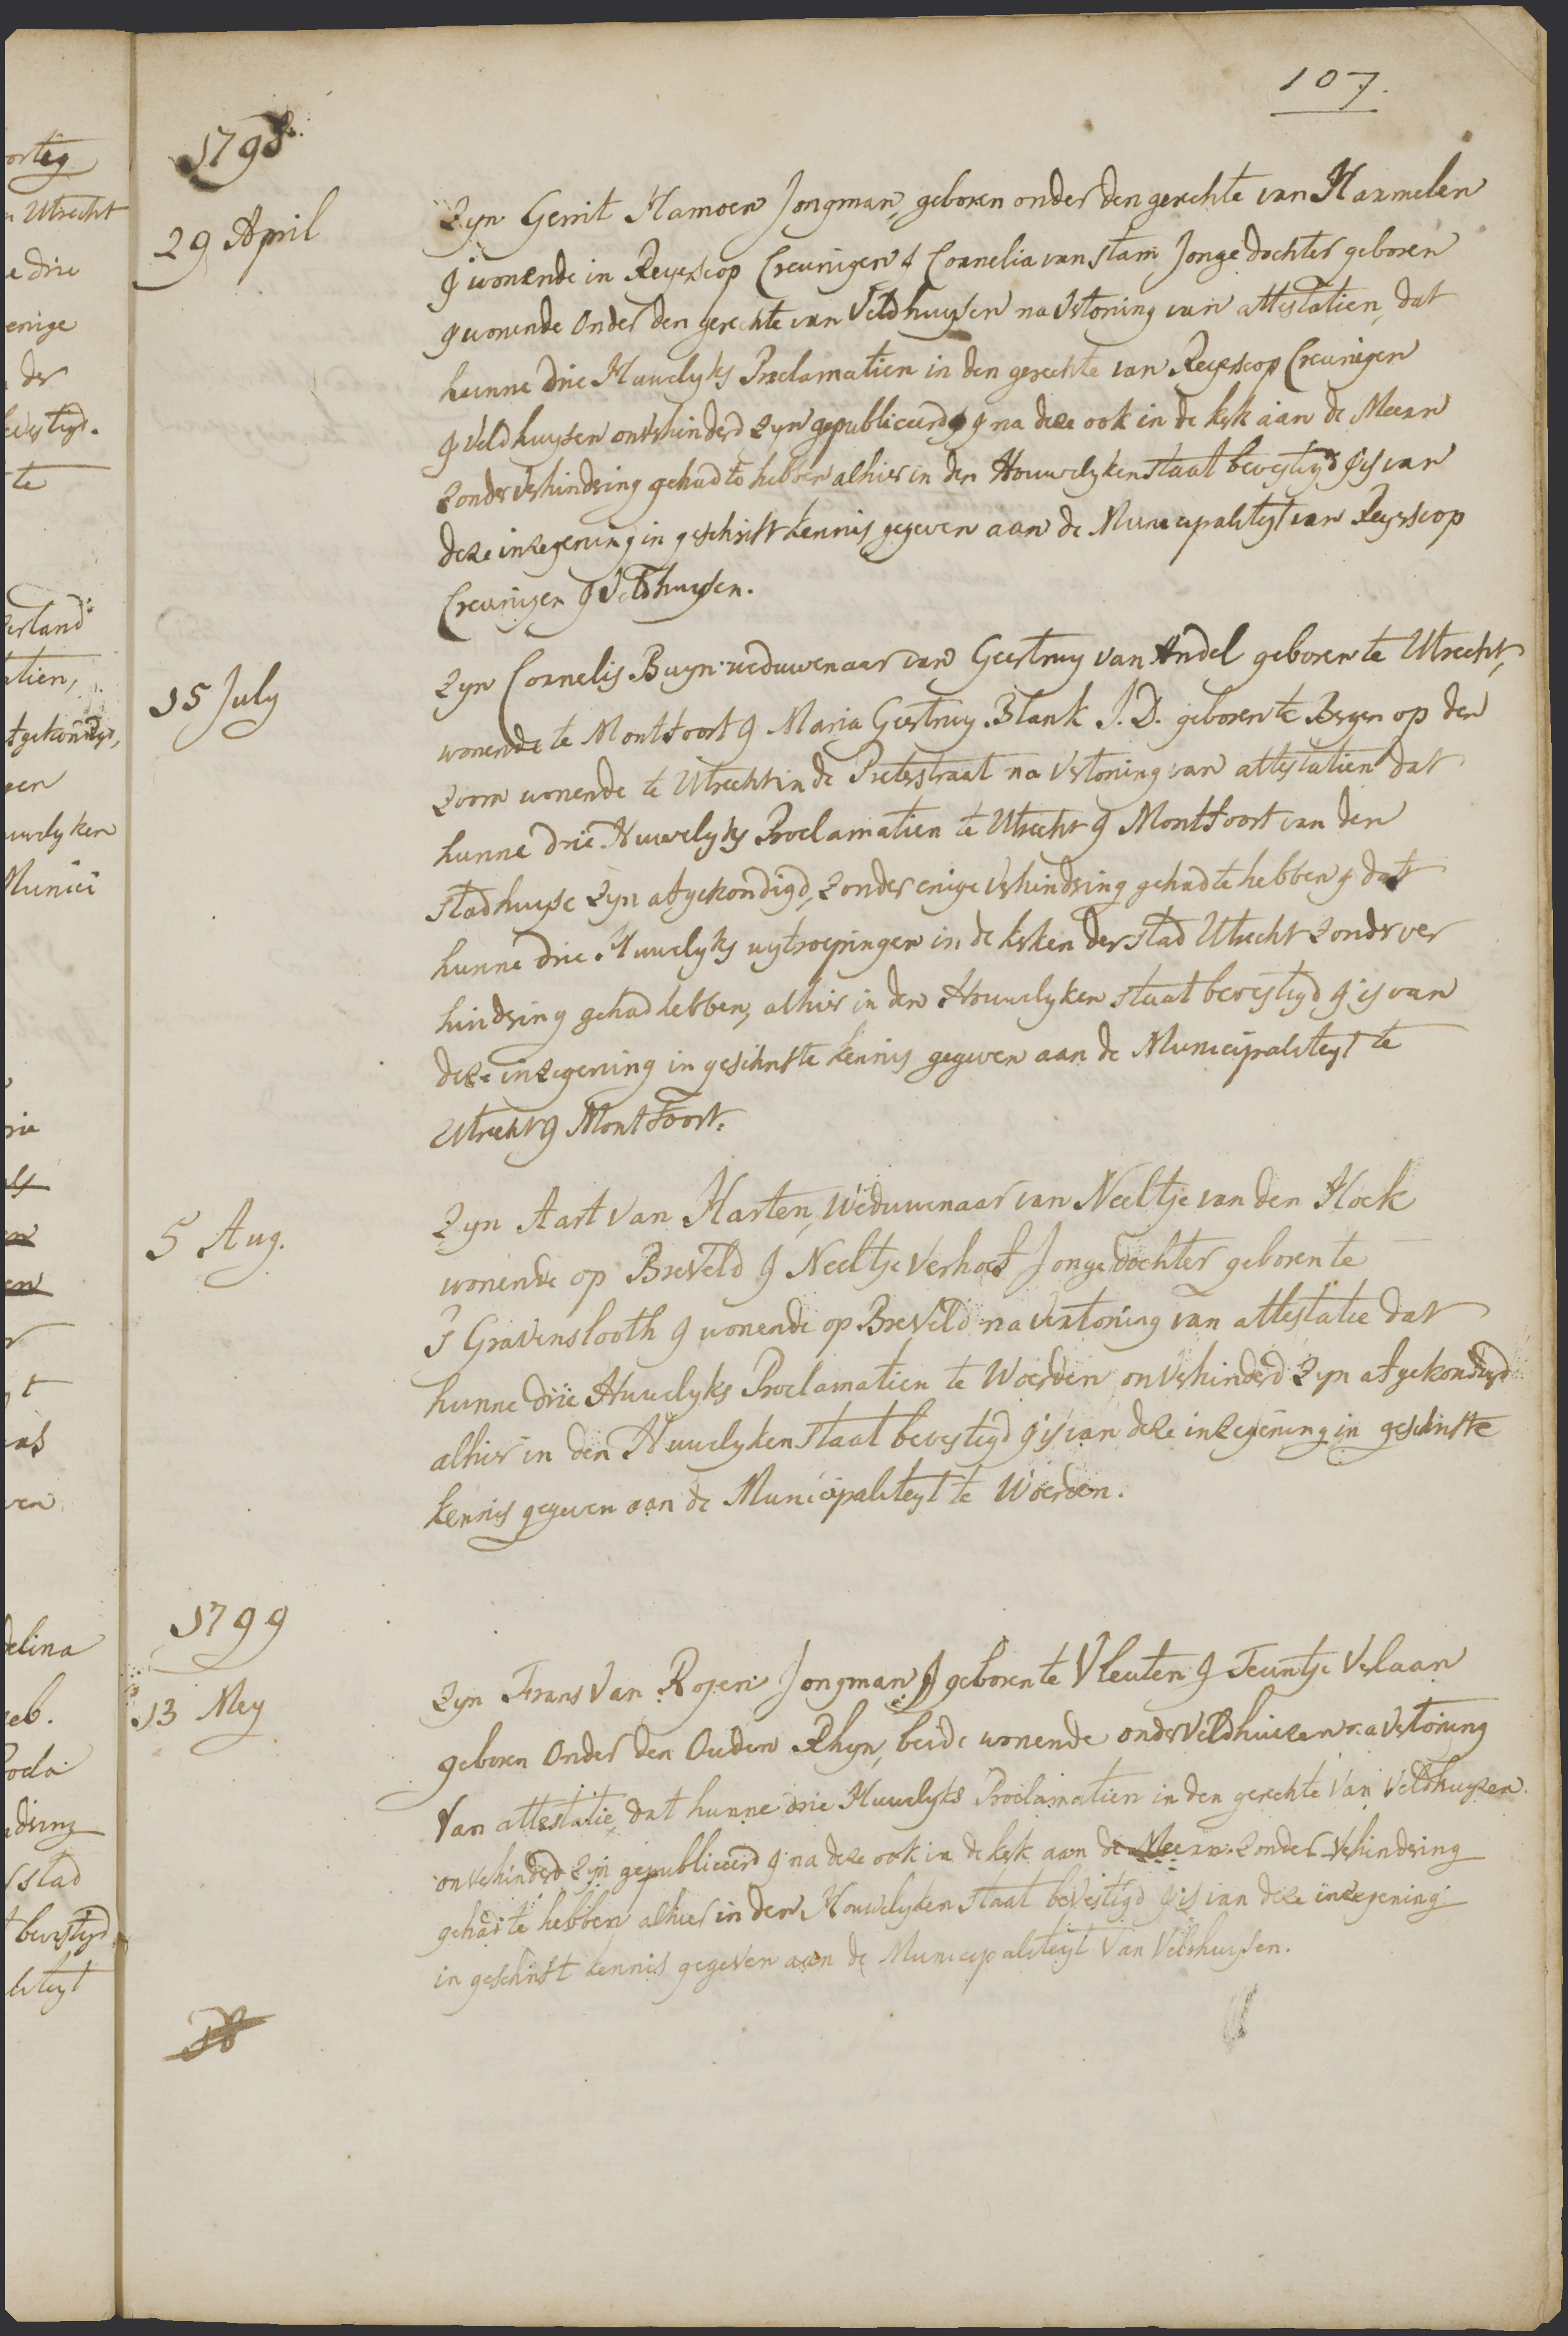 107.
1798.
29 April
Zyn Gerrit Hamoen Jongman, geboren onder den gerechte van Harmelen
& wonende in Reyerscop Creuningen & Cornelia van Stam Jonge dochter geboren
& wonende onder den gerechte van Veldhuysen na Vertoning van attestatien, dat
hunne drie Huwelyks Proclamatien in den gerechte van Reyerscop Creuningen
& Veldhuysen onverhinderd zyn gepubliceerd & na deze ook in de kerk aan de Meern
zonder verhindring gehad te hebben alhier in den Houwelyken staat bevestigd & is van
deze inzegening in geschrift kennis gegeven aan de Municipaliteyt van Reyerscop
Creuningen & Veldhuysen.
15 July
Zyn Cornelis Buyn weduwenaar van Geertruy van Andel geboren te Utrecht,
wonende te Montfoort & Maria Geertruy Blank J.D. geboren te Bergen op den
Zoom wonende te Utrecht in de Pieterstraat na Vertoning van attestatien dat
hunne drie Huwelyks Proclamatien te Utrecht & Montfoort van den
Stadhuyse zyn afgekondigd, zonder enige verhindring gehad te hebben & dat
hunne drie Huwelyks uytroepingen in de kerken der stad Utrecht zonder ver
hindring gehad hebben, alhier in den Houwelyken staat bevestigd & is van
deze inzegening in geschrifte kennis gegeven aan de Municipaliteyt te
Utrecht & Montfoort.
5 Aug.
Zyn Aart van Harten, Weduwenaar van Neeltje van den Hoek
wonende op Breveld & Neeltje Verhoef Jonge dochter geboren te
S Gravenslooth & wonende op Breveld na vertoning van attestatie dat
hunne drie Huwelyks Proclamatien te Woerden onverhinderd zyn afgekondigd
alhier in den Huwelyken staat bevestigd & is van deze inzegening in geschrifte
kennis gegeven aan de Municipaliteyt te Woerden.
1799
13 Mey
Zyn Frans Van Rogen Jongman & geboren te Vleuten & Teuntje Verlaan
geboren onder den Ouden Rhyn, beide wonende onder Veldhuizen na Vertoning
Van attestatie, dat hunne drie Huwelyks Proclamatien in den gerechte Van Veldhuyzen
onverhinderd zyn gepubliceerd & na deze ook in de kerk aan de Meern zonder verhindring
gehad te hebben alhier in den Houwelyken staat bevestigd & is van deze inzegening
in geschrift kennis gegeven aan de Municipaliteyt Van Veldhuysen.